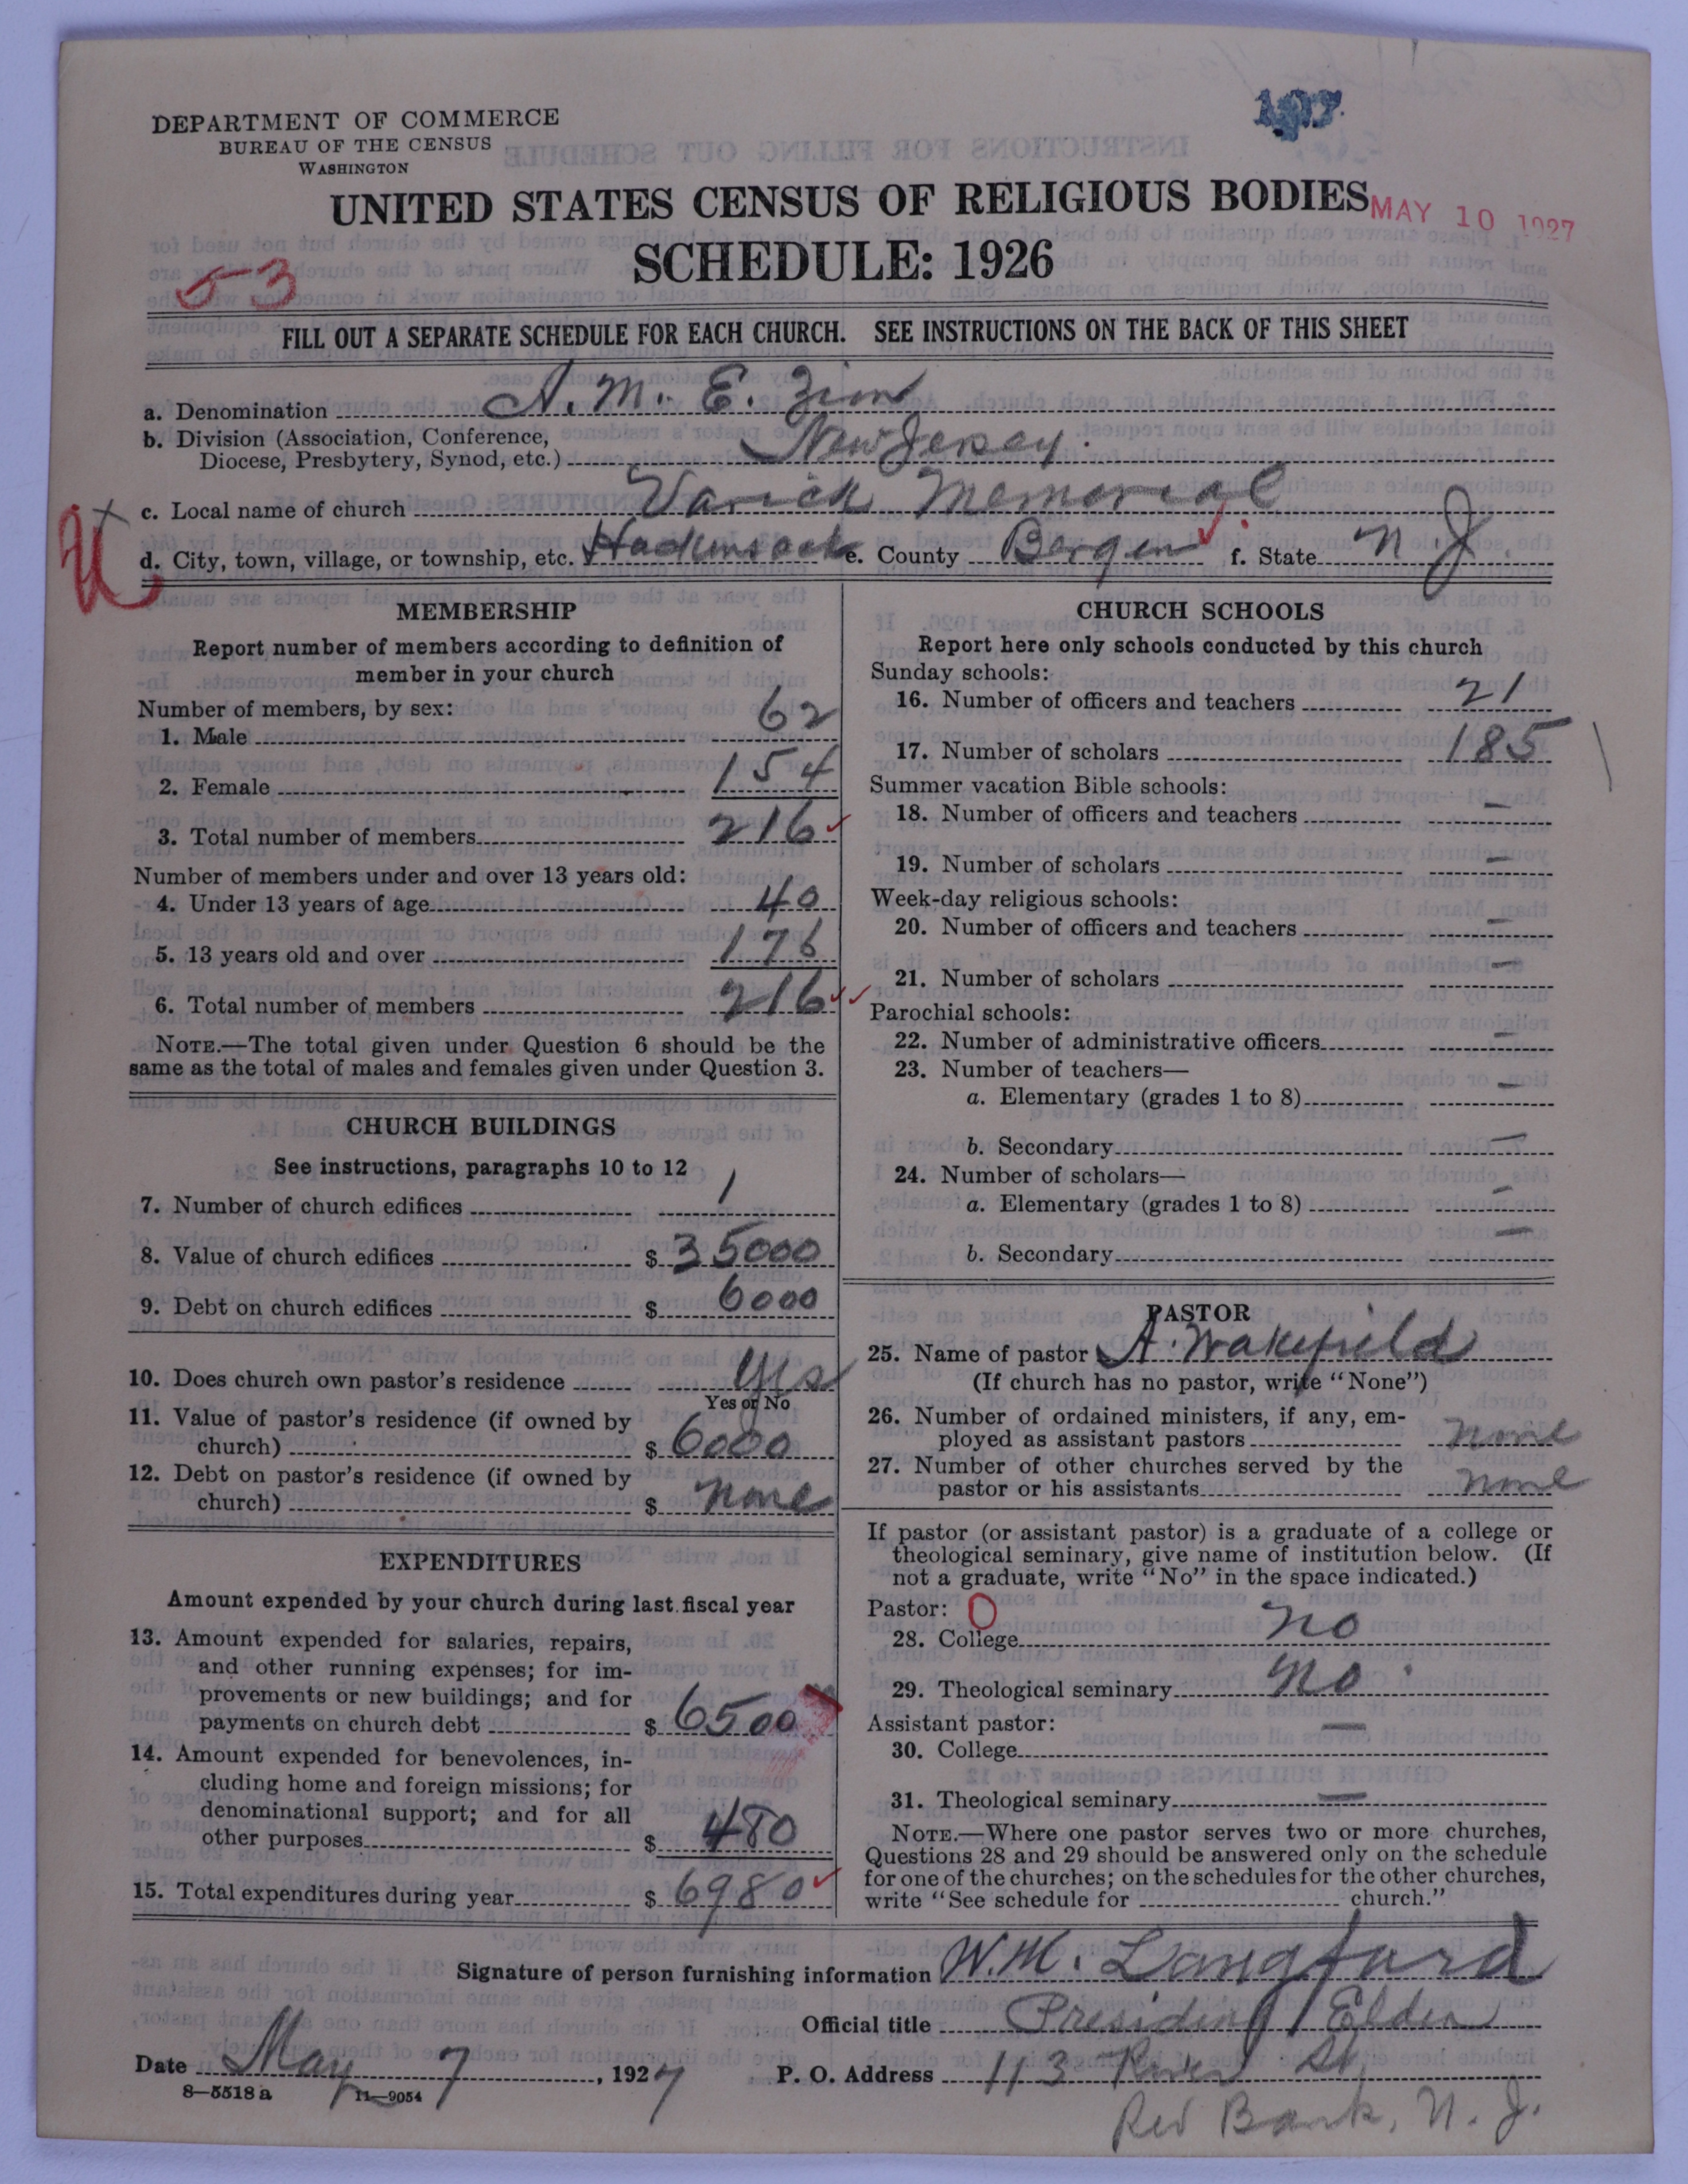 DEPARTMENT OF COMMERCE
BUREAU OF THE CENSUS
WASHINGTON
UNITED STATES CENSUS OF RELIGIOUS BODIES
MAY 10 1927
SCHEDULE: 1926
53
FILL OUT A SEPARATE SCHEDULE FOR EACH CHURCH. SEE INSTRUCTIONS ON THE BACK OF THIS SHEET
a. Denomination A. M. E. Zion
b. Division (Association, Conference, Diocese, Presbytery, Synod, etc.) New Jersey.
c. Local name of church Varick Memorial
d. City, town, village, or township, etc. Hackensack e. County Bergen f. State N. J.
MEMBERSHIP
Report number of members according to definition of
member in your church
Number of members, by sex:
1. Male 62
2. Female 154
3. Total number of members 216
Number of members under and over 13 years old:
4. Under 13 years of age 40
5. 13 years old and over 176
6. Total number of members 216
NOTE.—The total given under Question 6 should be the
same as the total of males and females given under Question 3.
CHURCH BUILDINGS
See instructions, paragraphs 10 to 12
7. Number of church edifices 1
8. Value of church edifices $ 35000
9. Debt on church edifices $ 6000
10. Does church own pastor's residence Yes
Yes or No
11. Value of pastor's residence (if owned by
church) $ 6000
12. Debt on pastor's residence (if owned by
church) $ none
EXPENDITURES
Amount expended by your church during last fiscal year
13. Amount expended for salaries, repairs,
and other running expenses; for im-
provements or new buildings; and for
payments on church debt $ 6500
14. Amount expended for benevolences, in-
cluding home and foreign missions; for
denominational support; and for all
other purposes $ 480
15. Total expenditures during year $ 6980
CHURCH SCHOOLS
Report here only schools conducted by this church
Sunday schools:
16. Number of officers and teachers 21
17. Number of scholars 185
Summer vacation Bible schools:
18. Number of officers and teachers —
19. Number of scholars —
Week-day religious schools:
20. Number of officers and teachers —
21. Number of scholars —
Parochial schools:
22. Number of administrative officers —
23. Number of teachers—
a. Elementary (grades 1 to 8) —
b. Secondary —
24. Number of scholars—
a. Elementary (grades 1 to 8) —
b. Secondary —
PASTOR
25. Name of pastor A. Wakefield
(If church has no pastor, write "None")
26. Number of ordained ministers, if any, em-
ployed as assistant pastors none
27. Number of other churches served by the
pastor or his assistants none
If pastor (or assistant pastor) is a graduate of a college or
theological seminary, give name of institution below. (If
not a graduate, write "No" in the space indicated.)
Pastor: 0
28. College no
29. Theological seminary no.
Assistant pastor:
30. College —
31. Theological seminary —
NOTE.—Where one pastor serves two or more churches,
Questions 28 and 29 should be answered only on the schedule
for one of the churches; on the schedules for the other churches,
write "See schedule for church."
Signature of person furnishing information W. M. Langford
Official title Presiding Elder
Date May 7, 1927 P. O. Address 113 River St.
8—5518 a 11—9054
Red Bank, N. J.